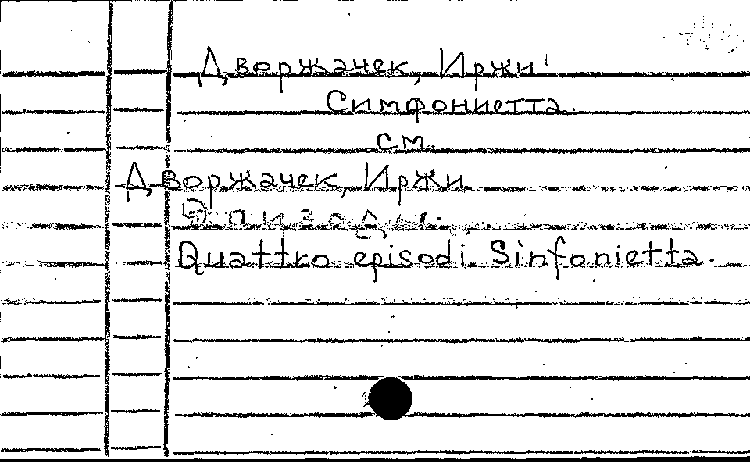 Дворжачек, Иржи
Симфониетта.
см.
Дворжачек, Иржи.
Эпизоды.
Quattro episodi. Sinfonietta.